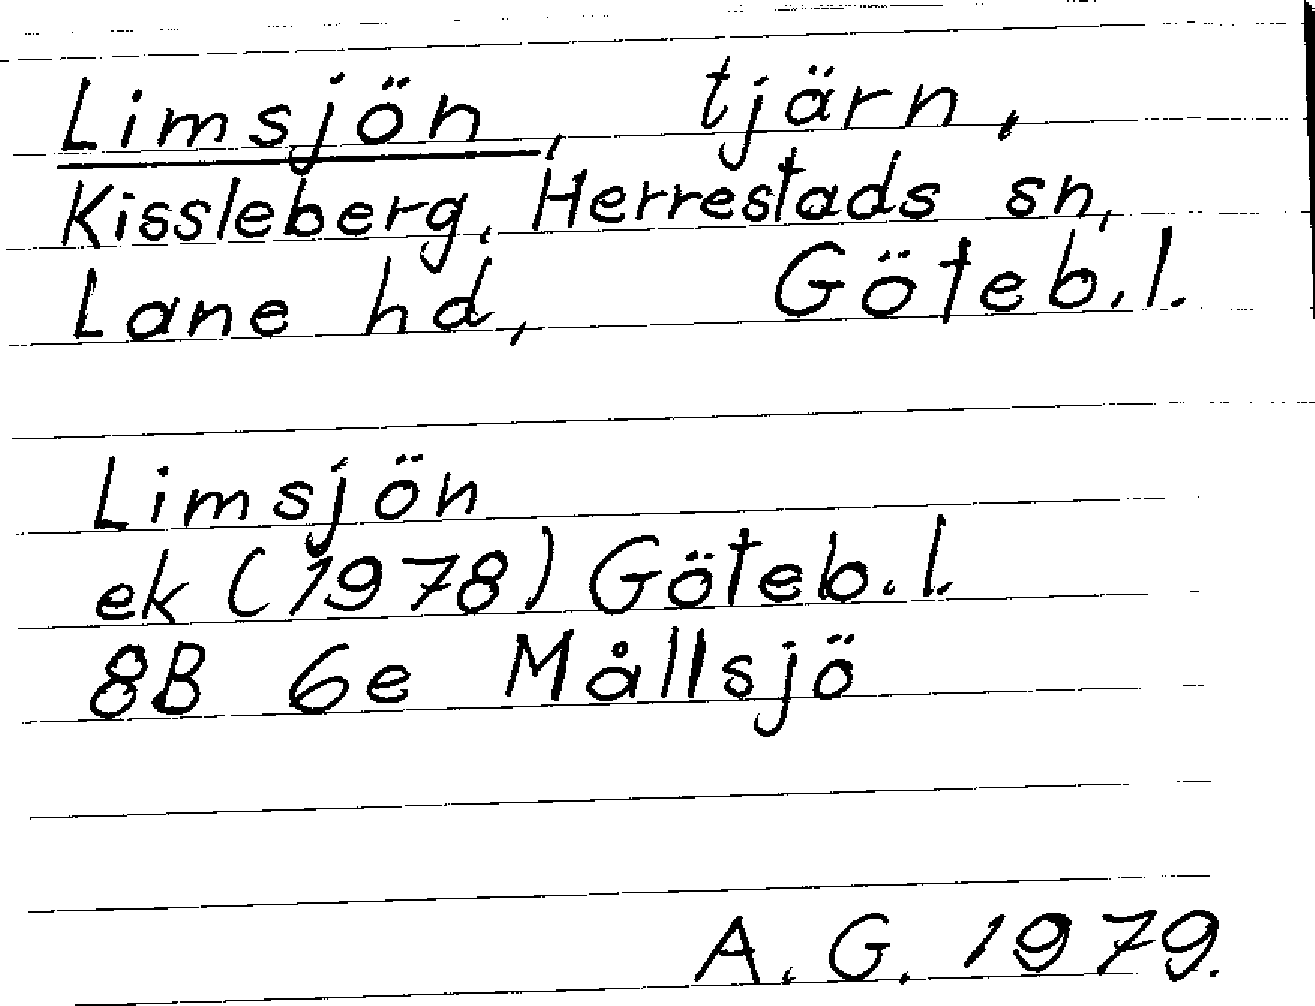 Limsjön, tjärn,
Kissleberg, Herrestads sn,
Lane hd, Göteb.l.
Limsjön
ek (1978) Göteb.l.
8B 6e Mållsjö
A.G. 1979.